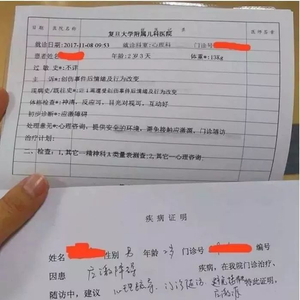 复旦大学附属儿科医院
就诊日期:2017-11-08 09:53 就诊科室:心理科 门诊号
患者姓名: 年龄:2岁3天 体重*:13kg
过敏史*:不详
主诉*:创伤事件后情绪及行为改变
体格检查*:神清,反应可,目光对视可,互动好
初步诊断*:应激障碍
处理意见*:心理咨询,提供安全的环境,避免接触应激源,门诊随访
治疗计划:
二、检查:1.其它-精神科A类量表测查;2.其它-心理咨询
疾病证明
姓名 性别 男 年龄 2岁 门诊号 编号
因患 应激障碍 疾病,在我院门诊治疗,
随访中,建议 心理疏导、门诊随访 特此证明,
应激源